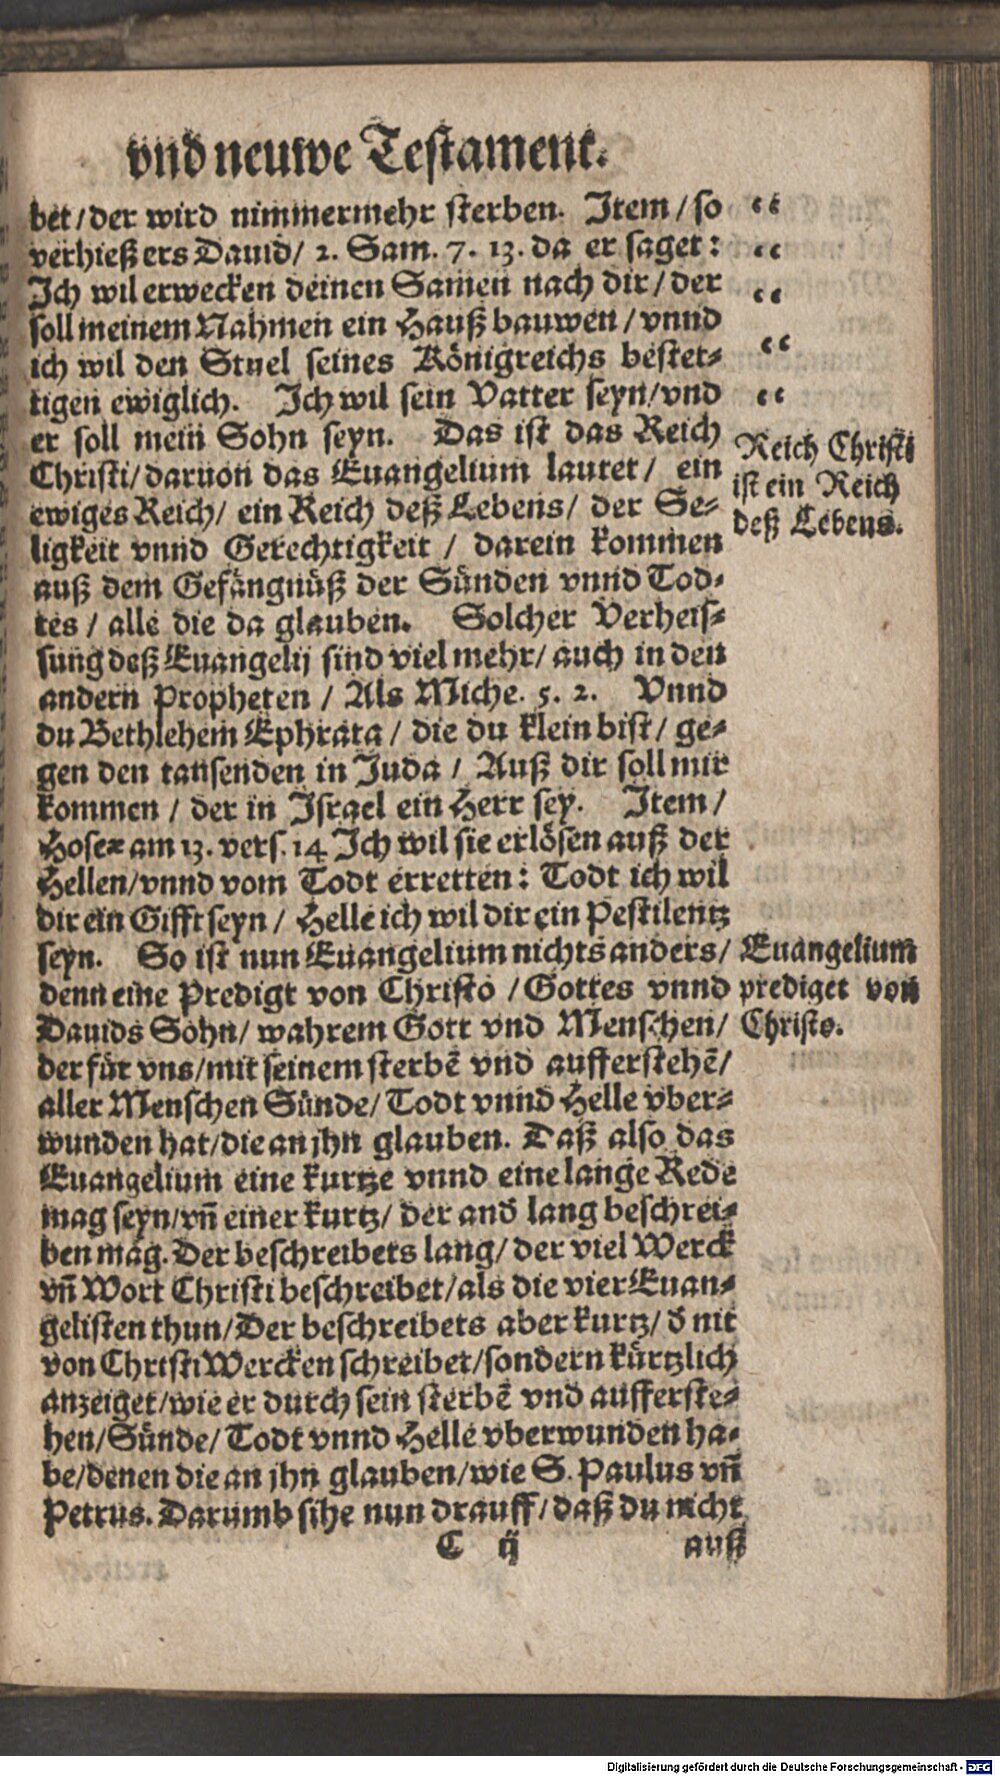 vnd neuwe Testament.
bet/der wird nimmermehr sterben. Item/so “
verhieß ers Dauid/ 2. Sam. 7. 13. da er saget: “
Ich wil erwecken deinen Samen nach dir/der “
soll meinem Nahmen ein Hauß bauwen/vnnd
ich wil den Stuel seines Königreichs bestet- “
tigen ewiglich. Ich wil sein Vatter seyn/vnd “
er soll mein Sohn seyn. Das ist das Reich
Christi/daruon das Euangelium lautet/ ein
ewiges Reich/ ein Reich deß Lebens/ der Se-
ligkeit vnnd Gerechtigkeit / darein kommen
auß dem Gefängnüß der Sünden vnnd Tod-
tes / alle die da glauben. Solcher Verheis-
sung deß Euangelij sind viel mehr/ auch in den
andern Propheten / Als Miche. 5. 2. Vnnd
du Bethlehem Ephrata / die du klein bist/ ge-
gen den tausenden in Juda / Auß dir soll mir
kommen / der in Israel ein Herr sey. Item/
Hoseæ am 13. vers. 14 Ich wil sie erlösen auß der
Hellen/vnnd vom Todt erretten: Todt ich wil
dir ein Gifft seyn / Helle ich wil dir ein Pestilentz
seyn. So ist nun Euangelium nichts anders/
denn eine Predigt von Christo /Gottes vnnd
Dauids Sohn/ wahrem Gott vnd Menschen/
der für vns/mit seinem sterbẽ vnd aufferstehẽ/
aller Menschen Sünde/ Todt vnnd Helle vber-
wunden hat/die an jhn glauben. Daß also das
Euangelium eine kurtze vnnd eine lange Rede
mag seyn/vñ einer kurtz/ der and̃ lang beschrei-
ben mag. Der beschreibets lang/ der viel Werck
vñ Wort Christi beschreibet/als die vier Euan-
gelisten thun/Der beschreibets aber kurtz/ d̃ nit
von Christi Wercken schreibet/sondern kürtzlich
anzeiget/wie er durch sein sterbẽ vnd aufferste-
hen/Sünde/ Todt vnnd Helle vberwunden ha-
be/denen die an jhn glauben/wie S. Paulus vñ
Petrus. Darumb sihe nun drauff/daß du nicht
C ij auß
Reich Christi
ist ein Reich
deß Lebens.
Euangelium
prediget von
Christo.
Digitalisierung gefördert durch die Deutsche Forschungsgemeinschaft - DFG